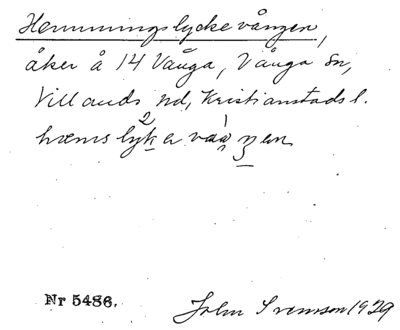 Hemmingslyckevången,
åker å 14 Vånga, Vånga sn,
Villands hd, Kristianstads l.
Nr 5486. John Svensson 1929